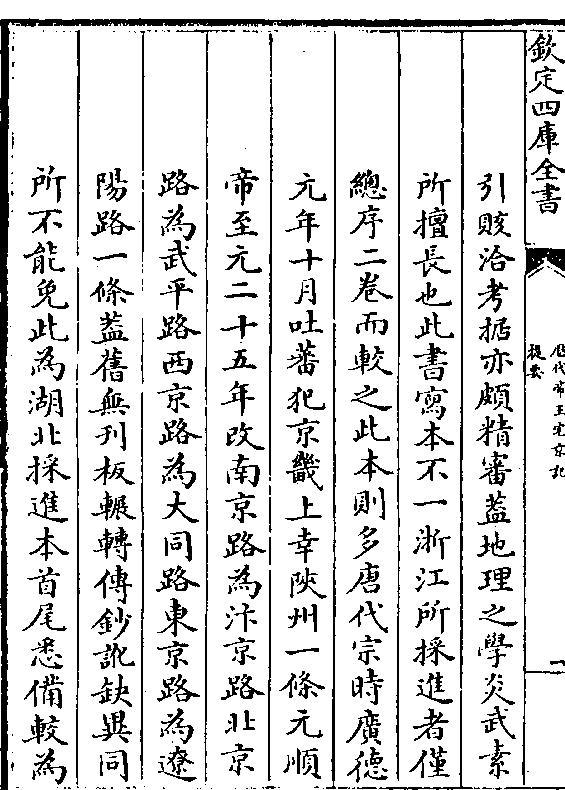 欽定四庫全書
歷代帝王宅京記
提要
引賅洽考据亦頗精審葢地理之學炎武素
所擅長也此書寫本不一浙江所採進者僅
總序二卷而較之此本則多唐代宗時廣德
元年十月吐蕃犯京畿上幸陜州一條元順
帝至元二十五年改南京路為汴京路北京
路為武平路西京路為大同路東京路為遼
陽路一條葢舊無刋板輾轉傳鈔訛缺異同
所不能免此為湖北採進本首尾悉備較為